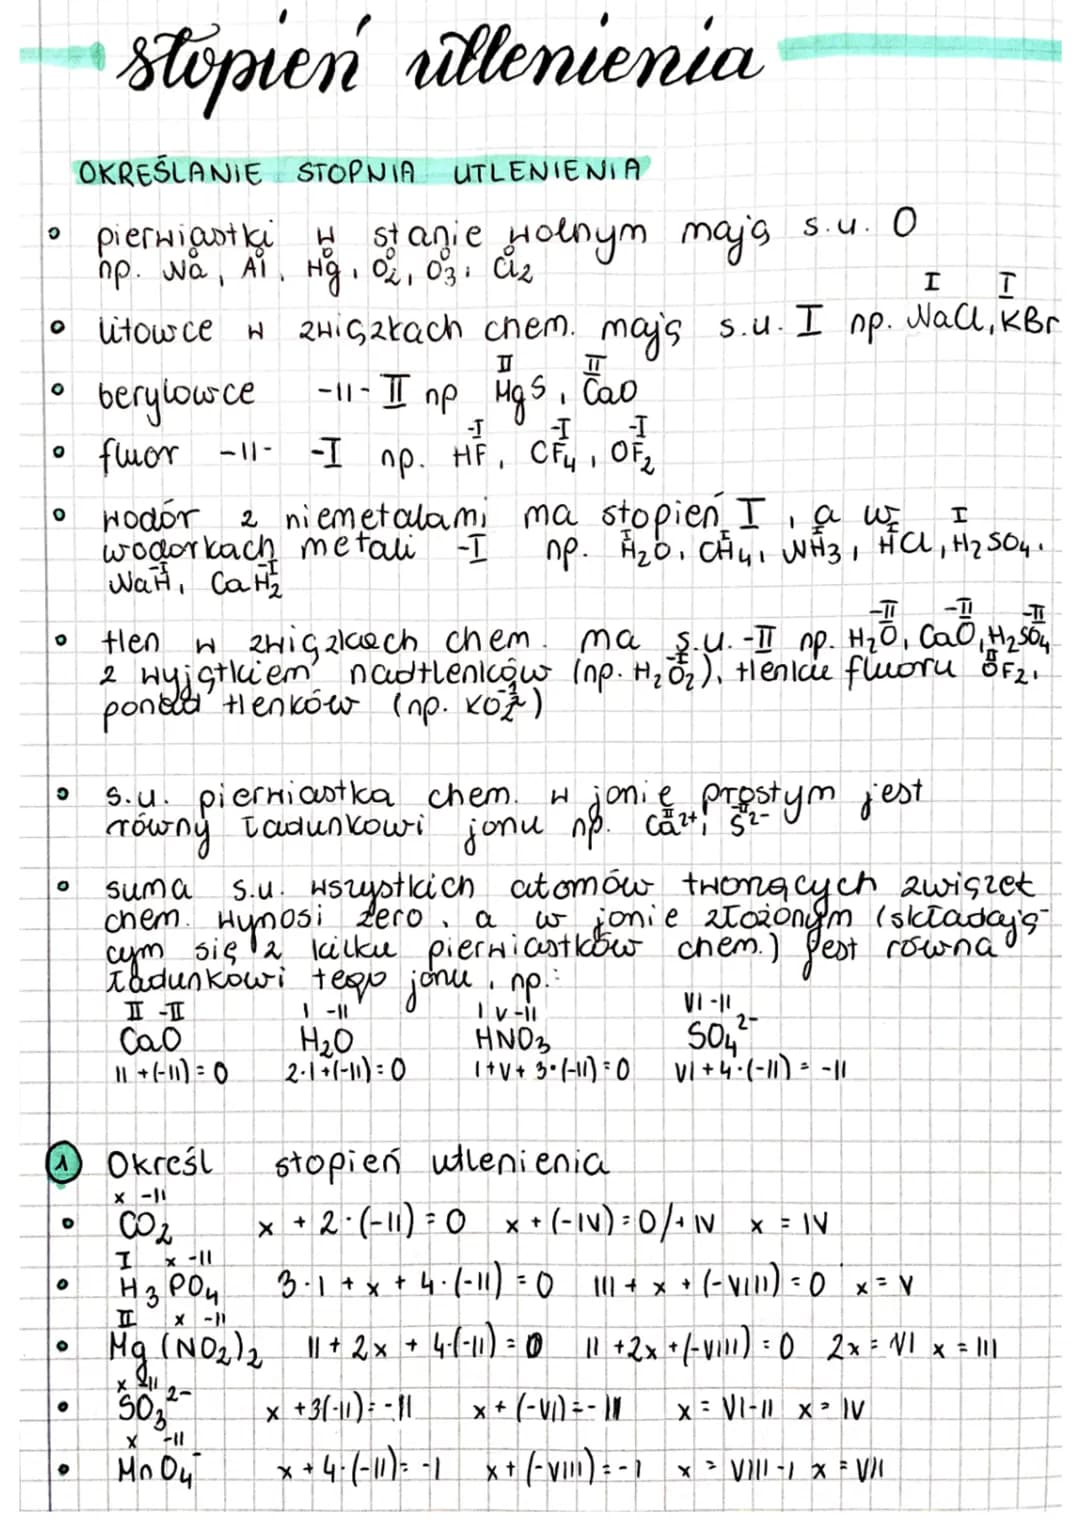 stopień utlenienia
OKREŚLANIE STOPNIA UTLENIENIA
• pierwiastki w stanie wolnym mają s.u. 0
0 0 0 0 0 0
np. Na, Al, Hg, O₂, O₃, Cl₂
I I
• litowce w związkach chem. mają s.u. I np. NaCl, KBr
II II
• berylowce -11- II np MgS, CaO
-I -I -I
• fluor -11- -I np. HF, CF₄, OF₂
• wodór z niemetalami ma stopień I, a w
I I I I I
wodorkach metali -I np. H₂O, CH₄, NH₃, HCl, H₂SO₄.
-I -I
NaH, CaH₂
-II -II -II
• tlen w związkach chem. ma s.u. -II np. H₂O, CaO, H₂SO₄
-I II
z wyjątkiem nadtlenków (np. H₂O₂), tlenku fluoru OF₂,
-½
ponad tlenków (np. KO₂)
• s.u. pierwiastka chem. w jonie prostym jest
II -II
równy ładunkowi jonu np. Ca²⁺, S²⁻
• suma s.u. wszystkich atomów tworzących związek
chem. wynosi zero, a w jonie złożonym (składają-
cym się z kilku pierwiastków chem.) jest równa
ładunkowi tego jonu, np.:
II -II I -II I V -II VI -II
CaO H₂O HNO₃ SO₄²⁻
II+(-II)=0 2·I+(-II)=0 I+V+3·(-II)=0 VI+4·(-II)=-II
1 Określ stopień utlenienia
x -II
• CO₂ x + 2·(-II)=0 x+(-IV)=0/+IV x = IV
I x -II
• H₃PO₄ 3·I + x + 4·(-II)=0 III + x + (-VIII)=0 x=V
II x -II
• Mg(NO₂)₂ II+2x + 4·(-II)=0 II+2x+(-VIII)=0 2x=VI x=III
x -II
• SO₃²⁻ x+3(-II)=-II x+(-VI)=-II x=VI-II x=IV
x -II
• MnO₄⁻ x+4·(-II)=-I x+(-VIII)=-I x=VIII-I x=VII